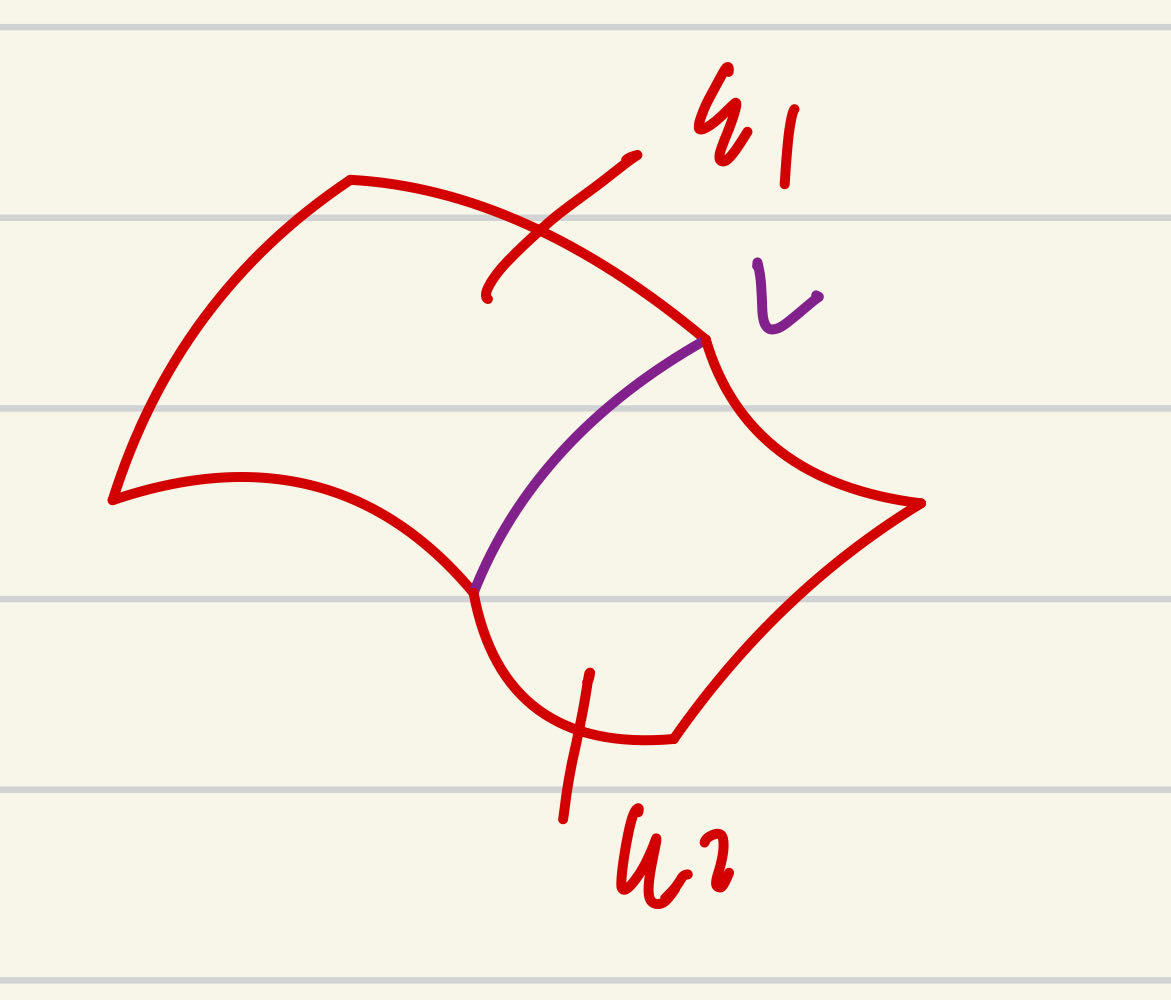 u1
v
u2